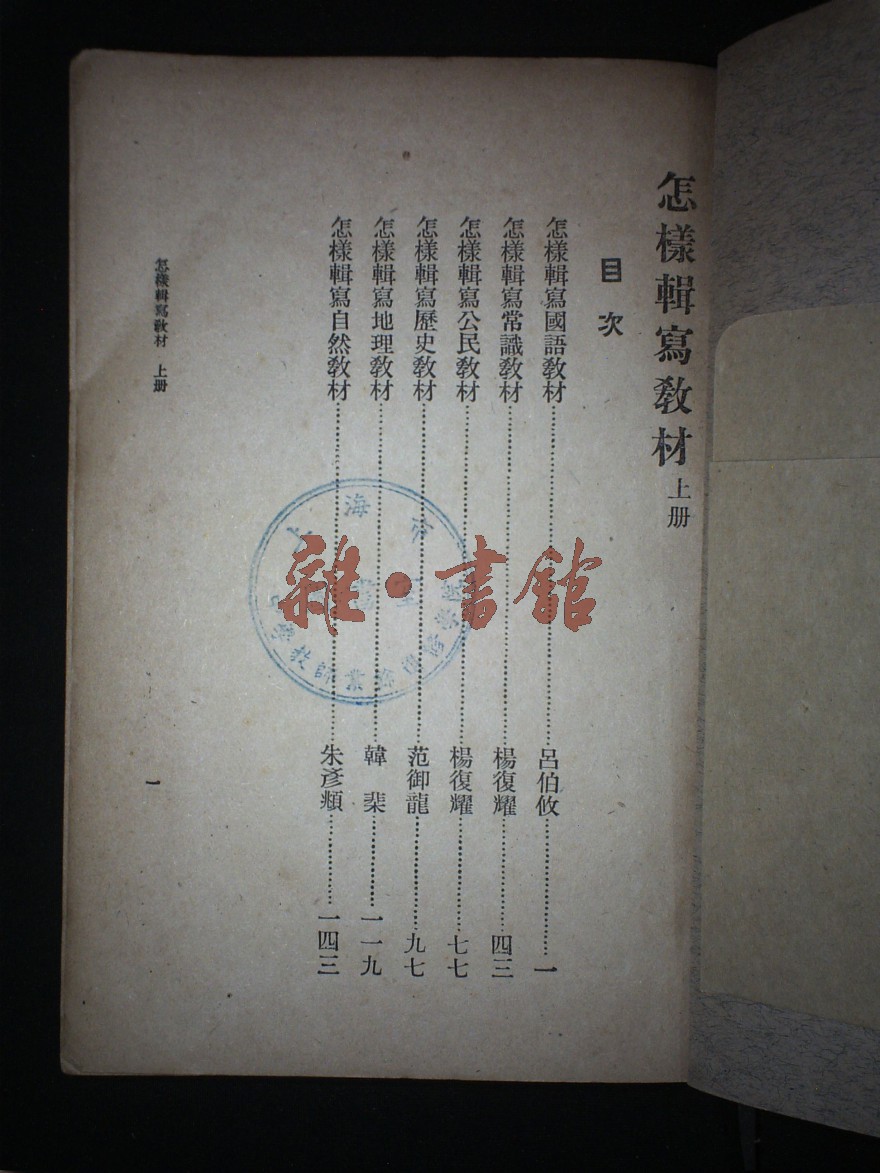 怎樣輯寫敎材 上册
目次
怎樣輯寫國語敎材……呂伯攸……一
怎樣輯寫常識敎材……楊復耀……四三
怎樣輯寫公民敎材……楊復耀……七七
怎樣輯寫歷史敎材……范御龍……九七
怎樣輯寫地理敎材……韓棐……一一九
怎樣輯寫自然敎材……朱彥頫……一四三
怎樣輯寫敎材 上册
一
雜·書館
上海市
教師業